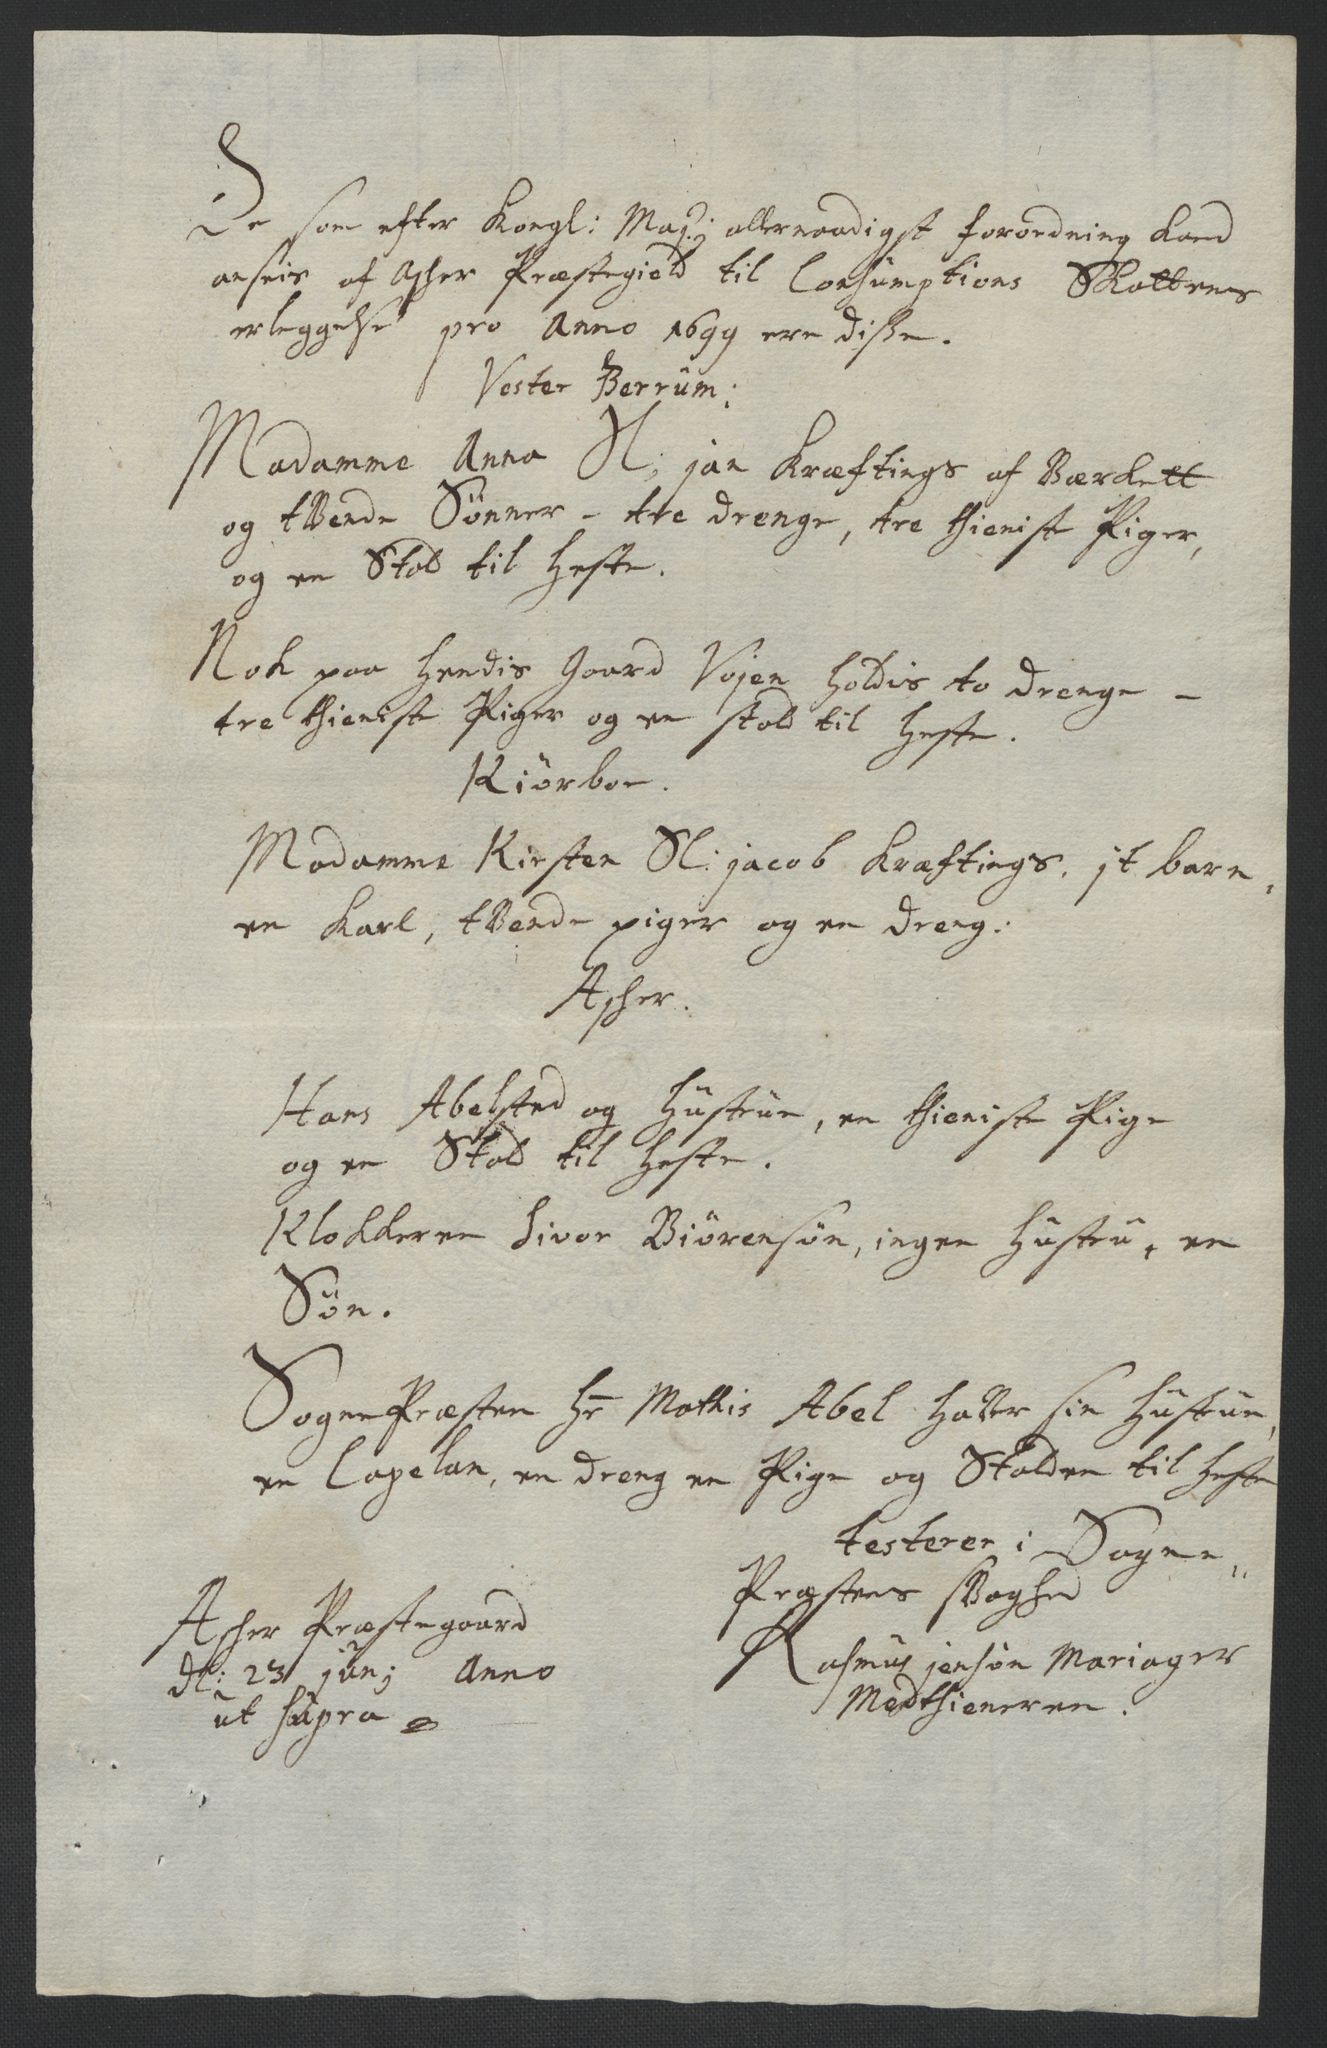 De som efter Kongl: Maj:j allernaadigst forordning kand
anseis af Asher Præstegield til Consumptions Skattens
erleggelse pro Anno 1699 ere disse.
Vester Berrum:
Madamme Anna Sl: jan Kræftings af Værckett
og tvende Sønner - tre drenge, tre thieniste Piger,
og en Stald til heste.
Nok paa hendis Gaard Vøjen holdis to drenge -
tre thieniste Piger og en stald til heste.
Kiørboe.
Madamme Kirsten Sl: jacob Kræftings. jt barn,
en Karl, tvende piger og en dreng:
Asher.
Hans Abelsted og hustrue, en thieniste Pige
og en Stald til heste.
Klokkeren Sivor Biörensøn, ingen hustru, en
Søn.
SognePræsten Hr Mathis Abel haver sin hustrue,
en Capelan, en dreng en Pige og Stalden til heste
testerer i Sogne„
Præstens svaghed
Asher Præstegaard
dt: 23 junj Anno
ut supra
Rasmus jensøn Mariager
Medthieneren.